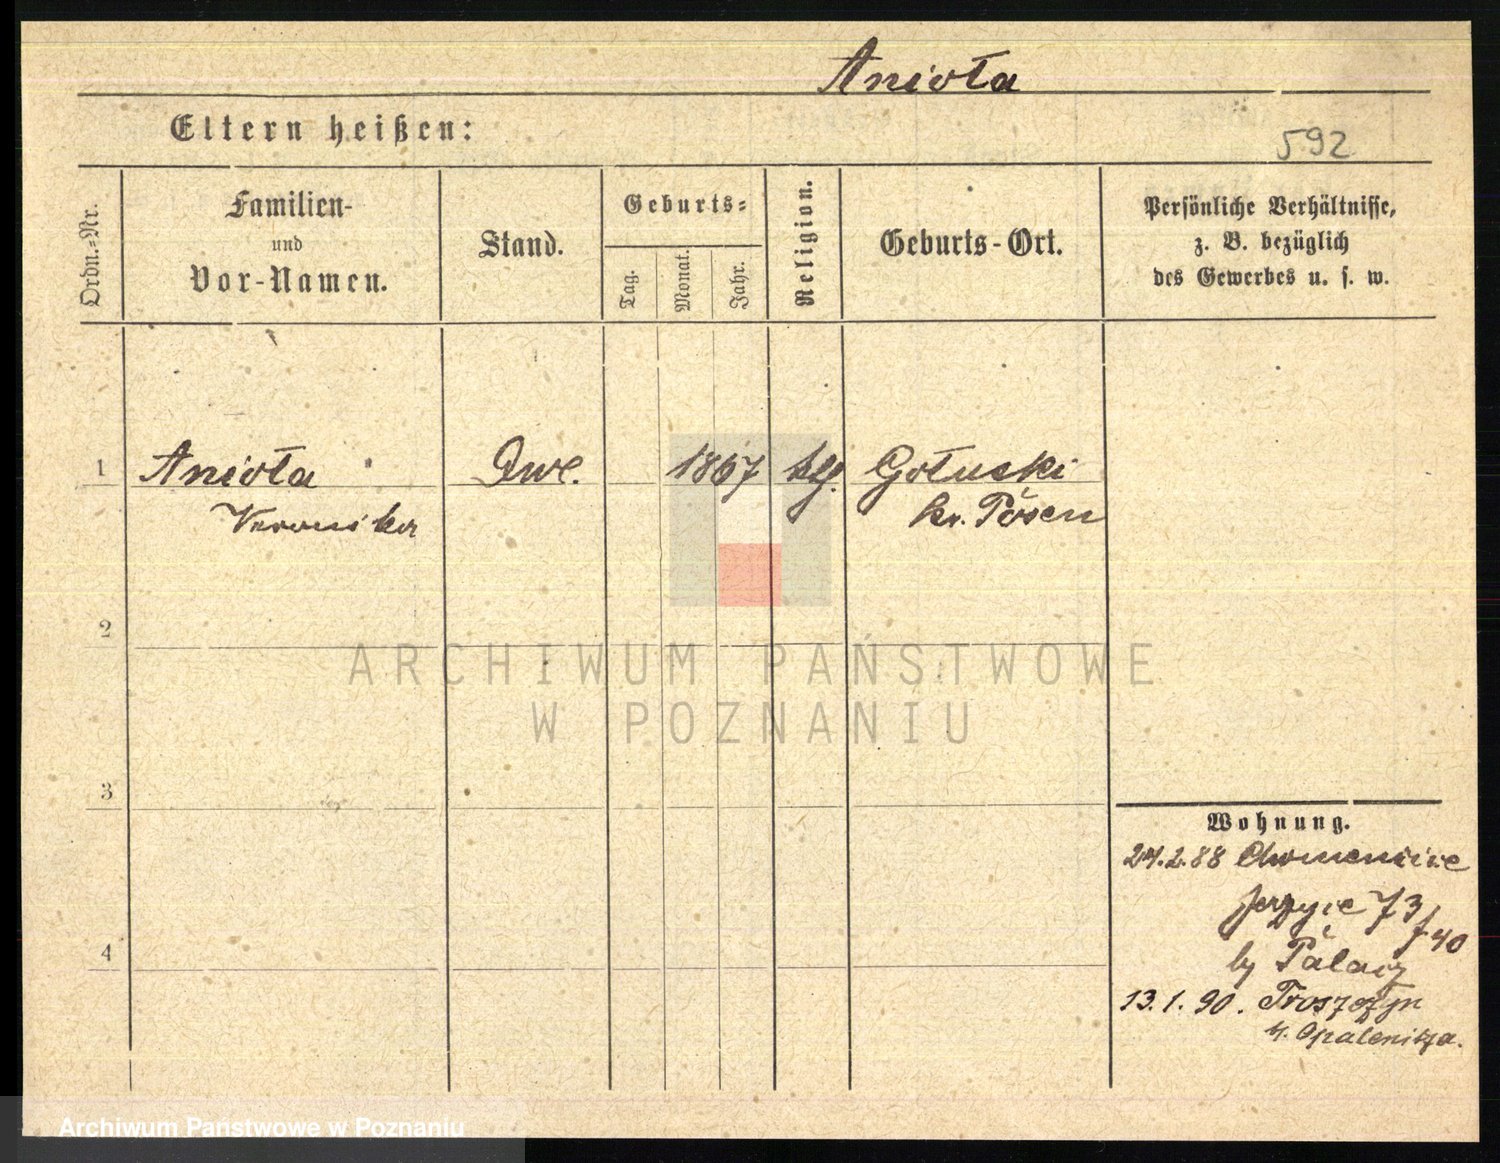 Anioła
Eltern heißen:
592
Ordn.-Nr.
Familien-
und
Vor-Namen.
Stand.
Geburts-
Tag.
Monat.
Jahr.
Religion.
Geburts-Ort.
Persönliche Verhältnisse,
z. B. bezüglich
des Gewerbes u. s. w.
1 Anioła 1867 Gołuski
Veronika kr. Posen
2
3
4
Wohnung.
24.2.88
Jerzyce 73
/40
by Palacz
13.1.90. Troszczyn
b. Opalenitza.
ARCHIWUM PAŃSTWOWE
W POZNANIU
Archiwum Państwowe w Poznaniu